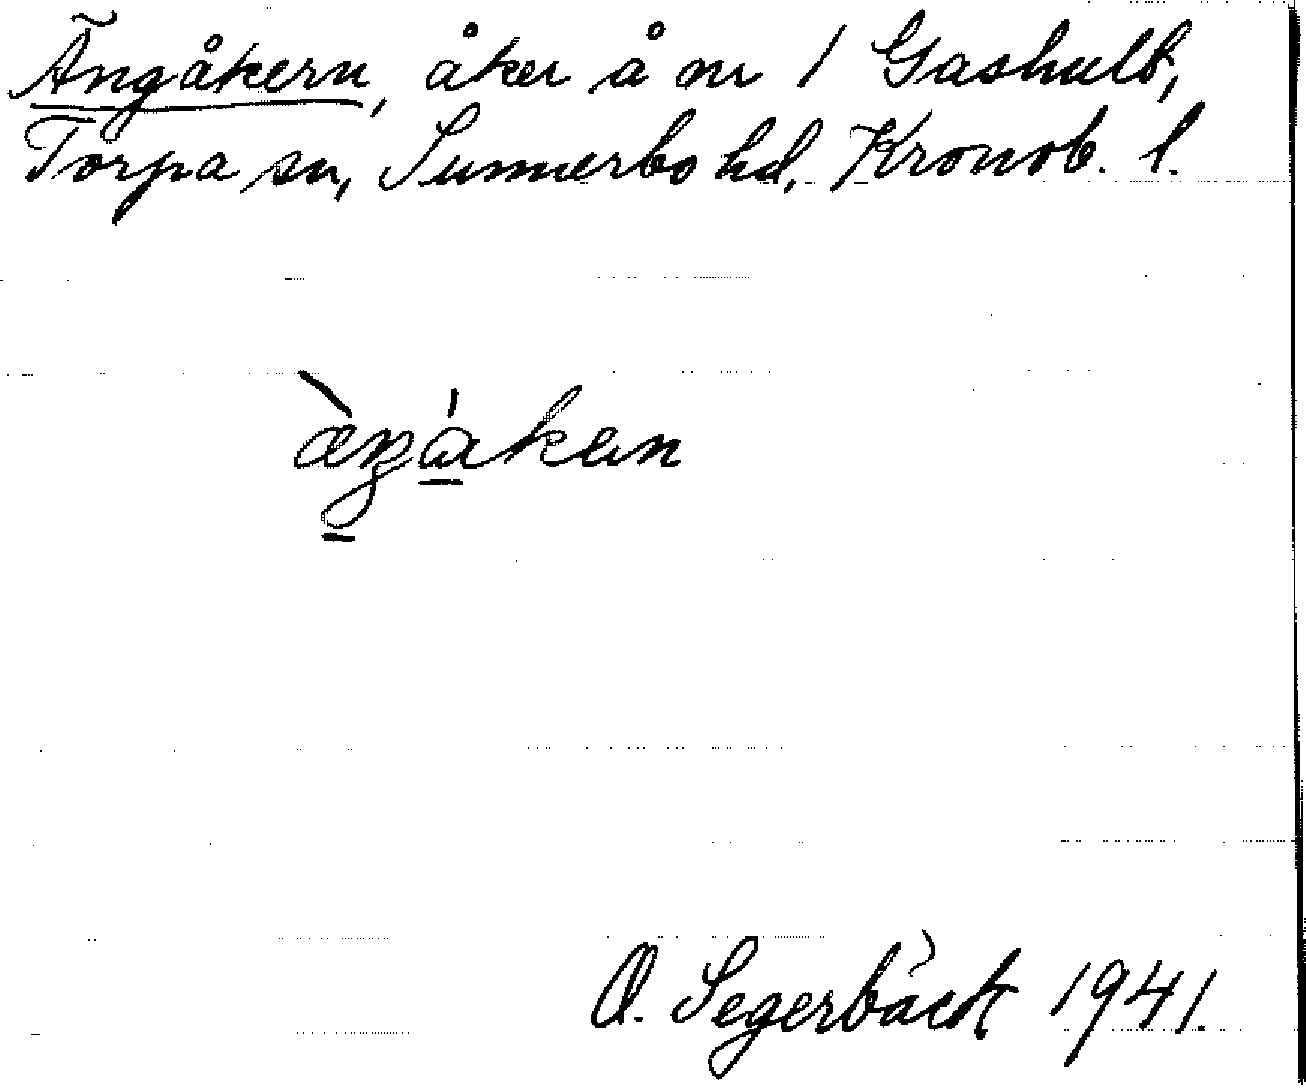 Ängåkern, åker å nr 1 Gashult,
Torpa sn, Sunnerbo hd, Kronob. l.
O. Segerbäck 1941.